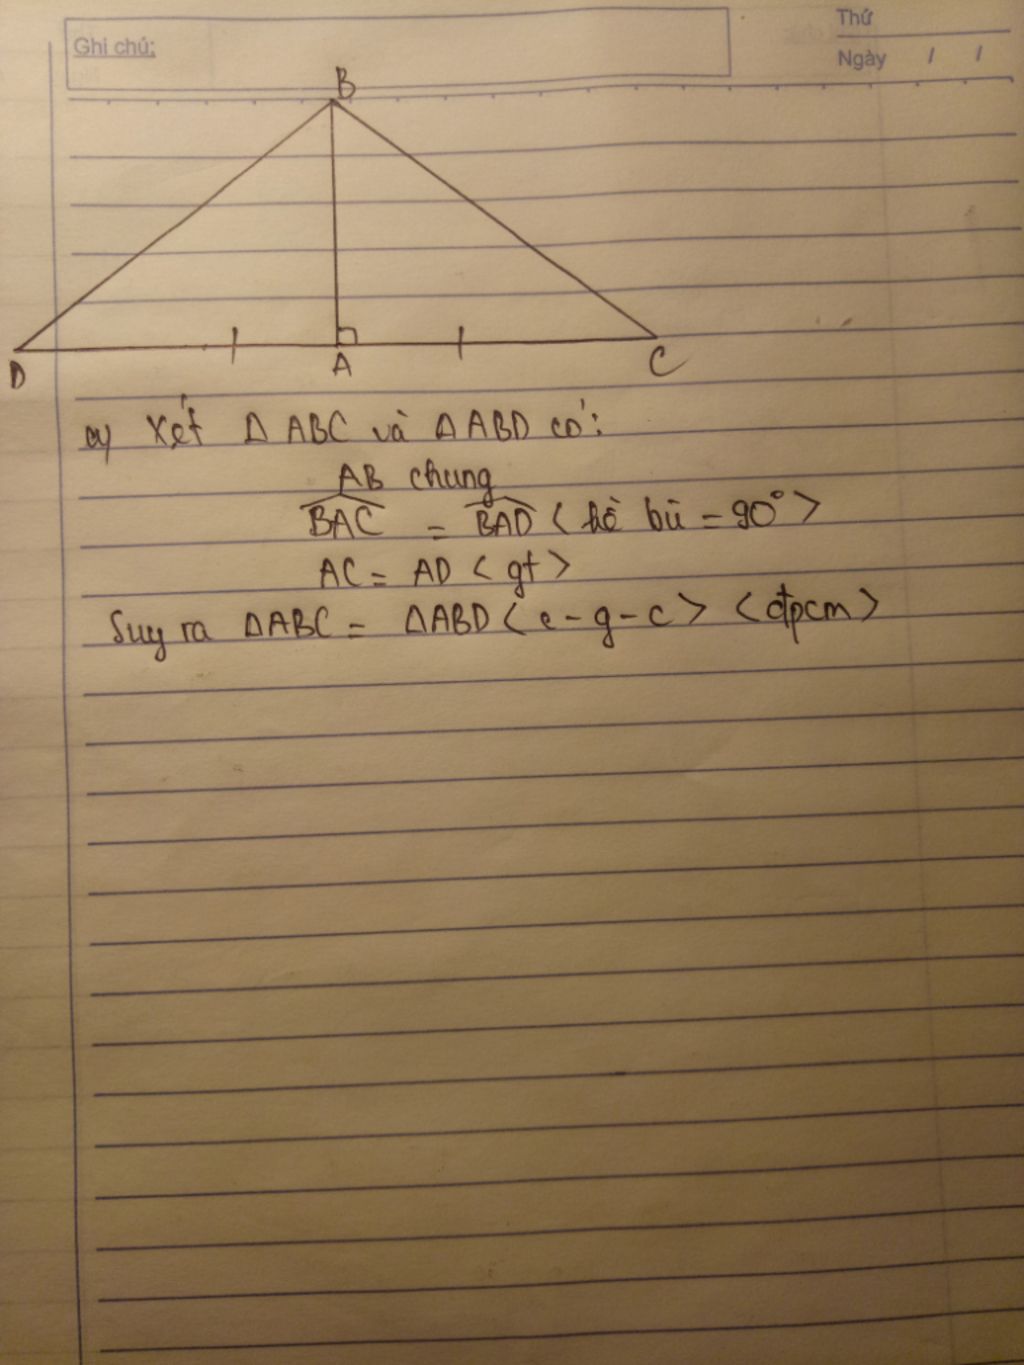 Ghi chú:
Thứ
Ngày / /
B
D
A
C
a) Xét Δ ABC và Δ ABD có:
AB chung
BAC = BAD < kề bù = 90° >
AC = AD < gt >
Suy ra ΔABC = ΔABD < c - g - c > < đpcm >